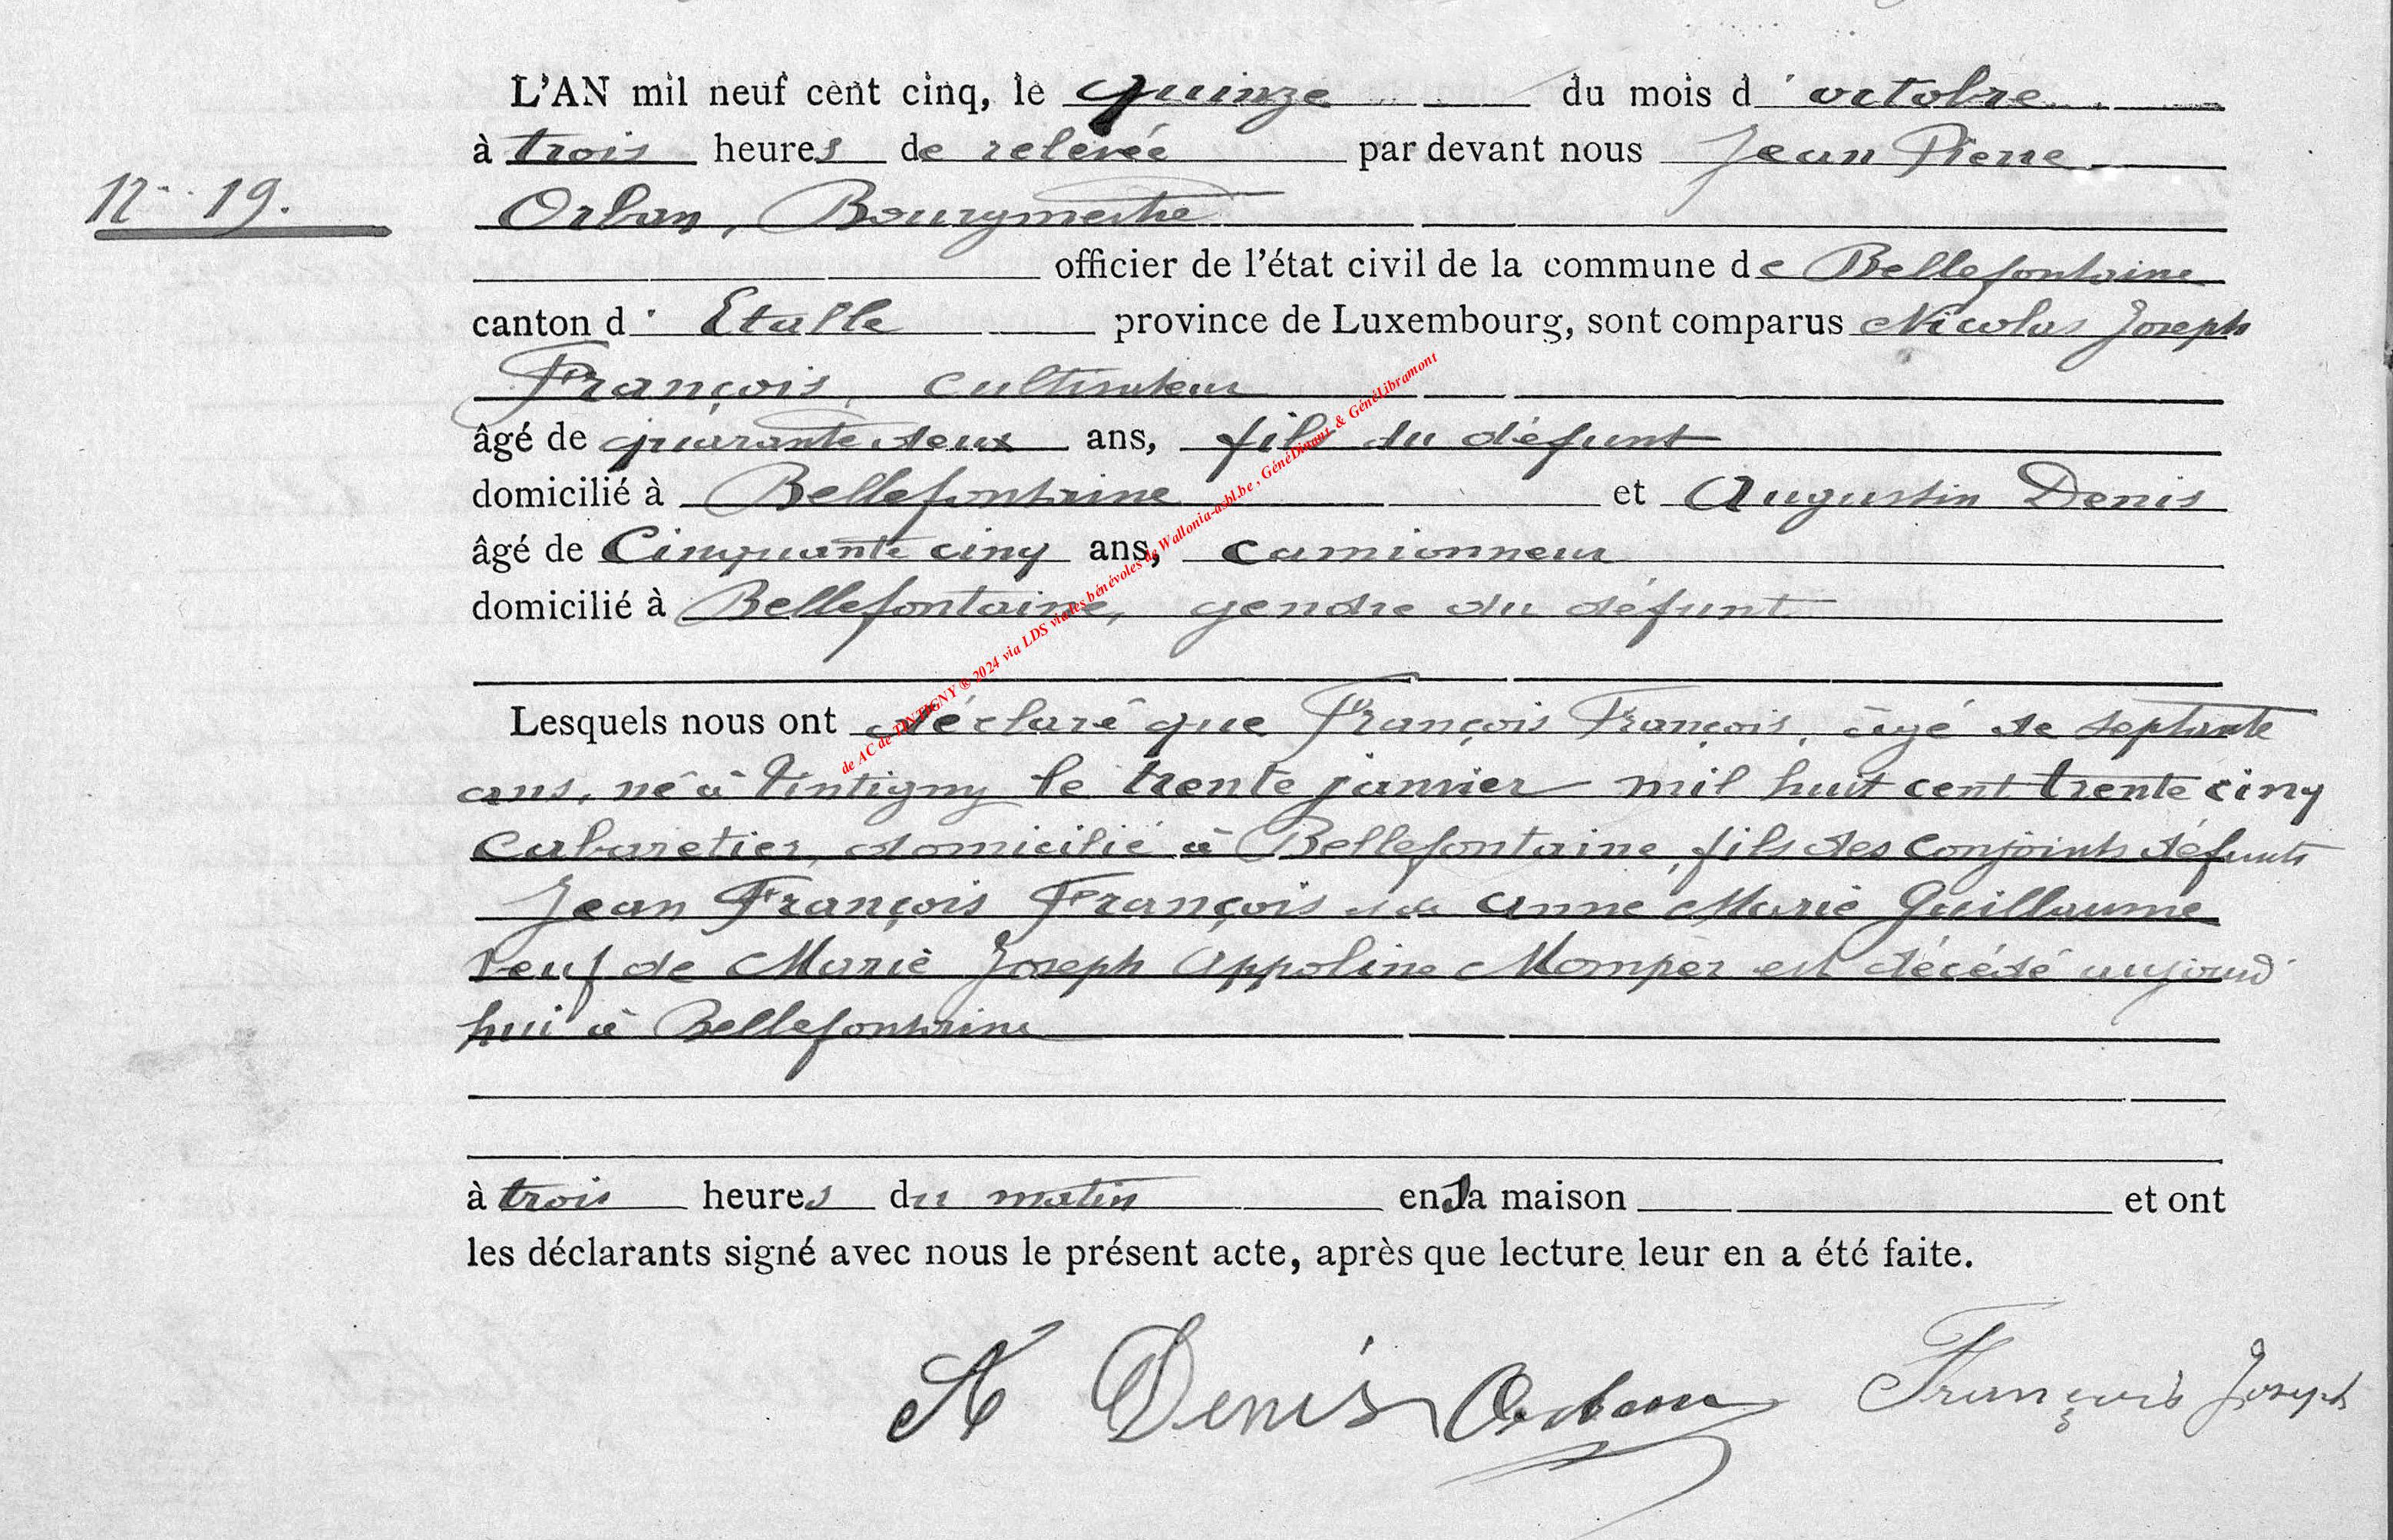 L'AN mil neuf cent cinq, le quinze du mois d'octobre
à trois heures de relevée par devant nous Jean Pierre
N° 19.
Orban, Bourgmestre
officier de l'état civil de la commune de Bellefontaine
canton d'Etalle province de Luxembourg, sont comparus Nicolas Joseph
François, cultivateur
âgé de quarante deux ans, fils du défunt
domicilié à Bellefontaine et Augustin Denis
âgé de Cinquante cinq ans, camionneur
domicilié à Bellefontaine, gendre du défunt
Lesquels nous ont déclaré que François François, âgé de septante
ans, né à Tintigny le trente janvier mil huit cent trente cinq
Cabaretier, domicilié à Bellefontaine, fils des conjoints défunts
Jean François François et de Anne Marie Guillaume
veuf de Marie Joseph Appoline Momper est décédé aujourd'
hui à Bellefontaine
à trois heures du matin en sa maison et ont
les déclarants signé avec nous le présent acte, après que lecture leur en a été faite.
A Denis Orban François Joseph
de AC de TINTIGNY ® 2024 via LDS via les bénévoles de Wallonia-asbl.be, GénéDinant & GénéLibramont